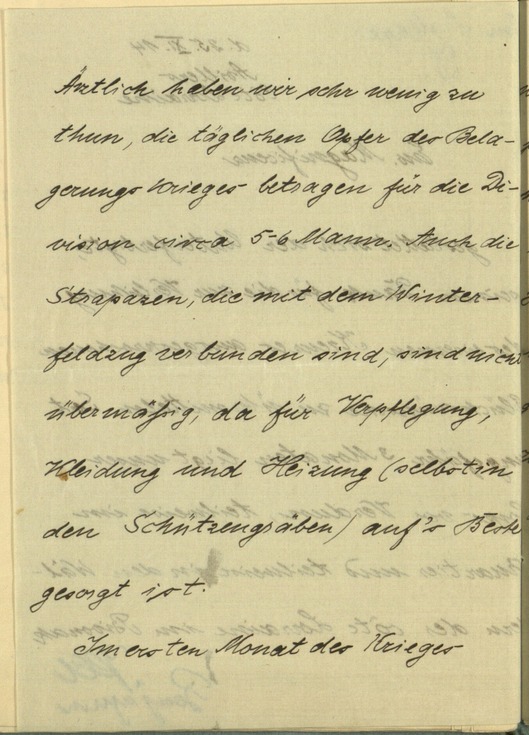 Ärztlich haben wir sehr wenig zu
thun, die täglichen Opfer des Bela-
gerungs Krieges betragen für die Di-
vision circa 5-6 Mann. Auch die
Strapazen, die mit dem Winter-
feldzug verbunden sind, sind nicht
übermäßig, da für Verpflegung,
Kleidung und Heizung (selbst in
den Schützengräben) auf's Beste
gesorgt ist.
Im ersten Monat des Krieges